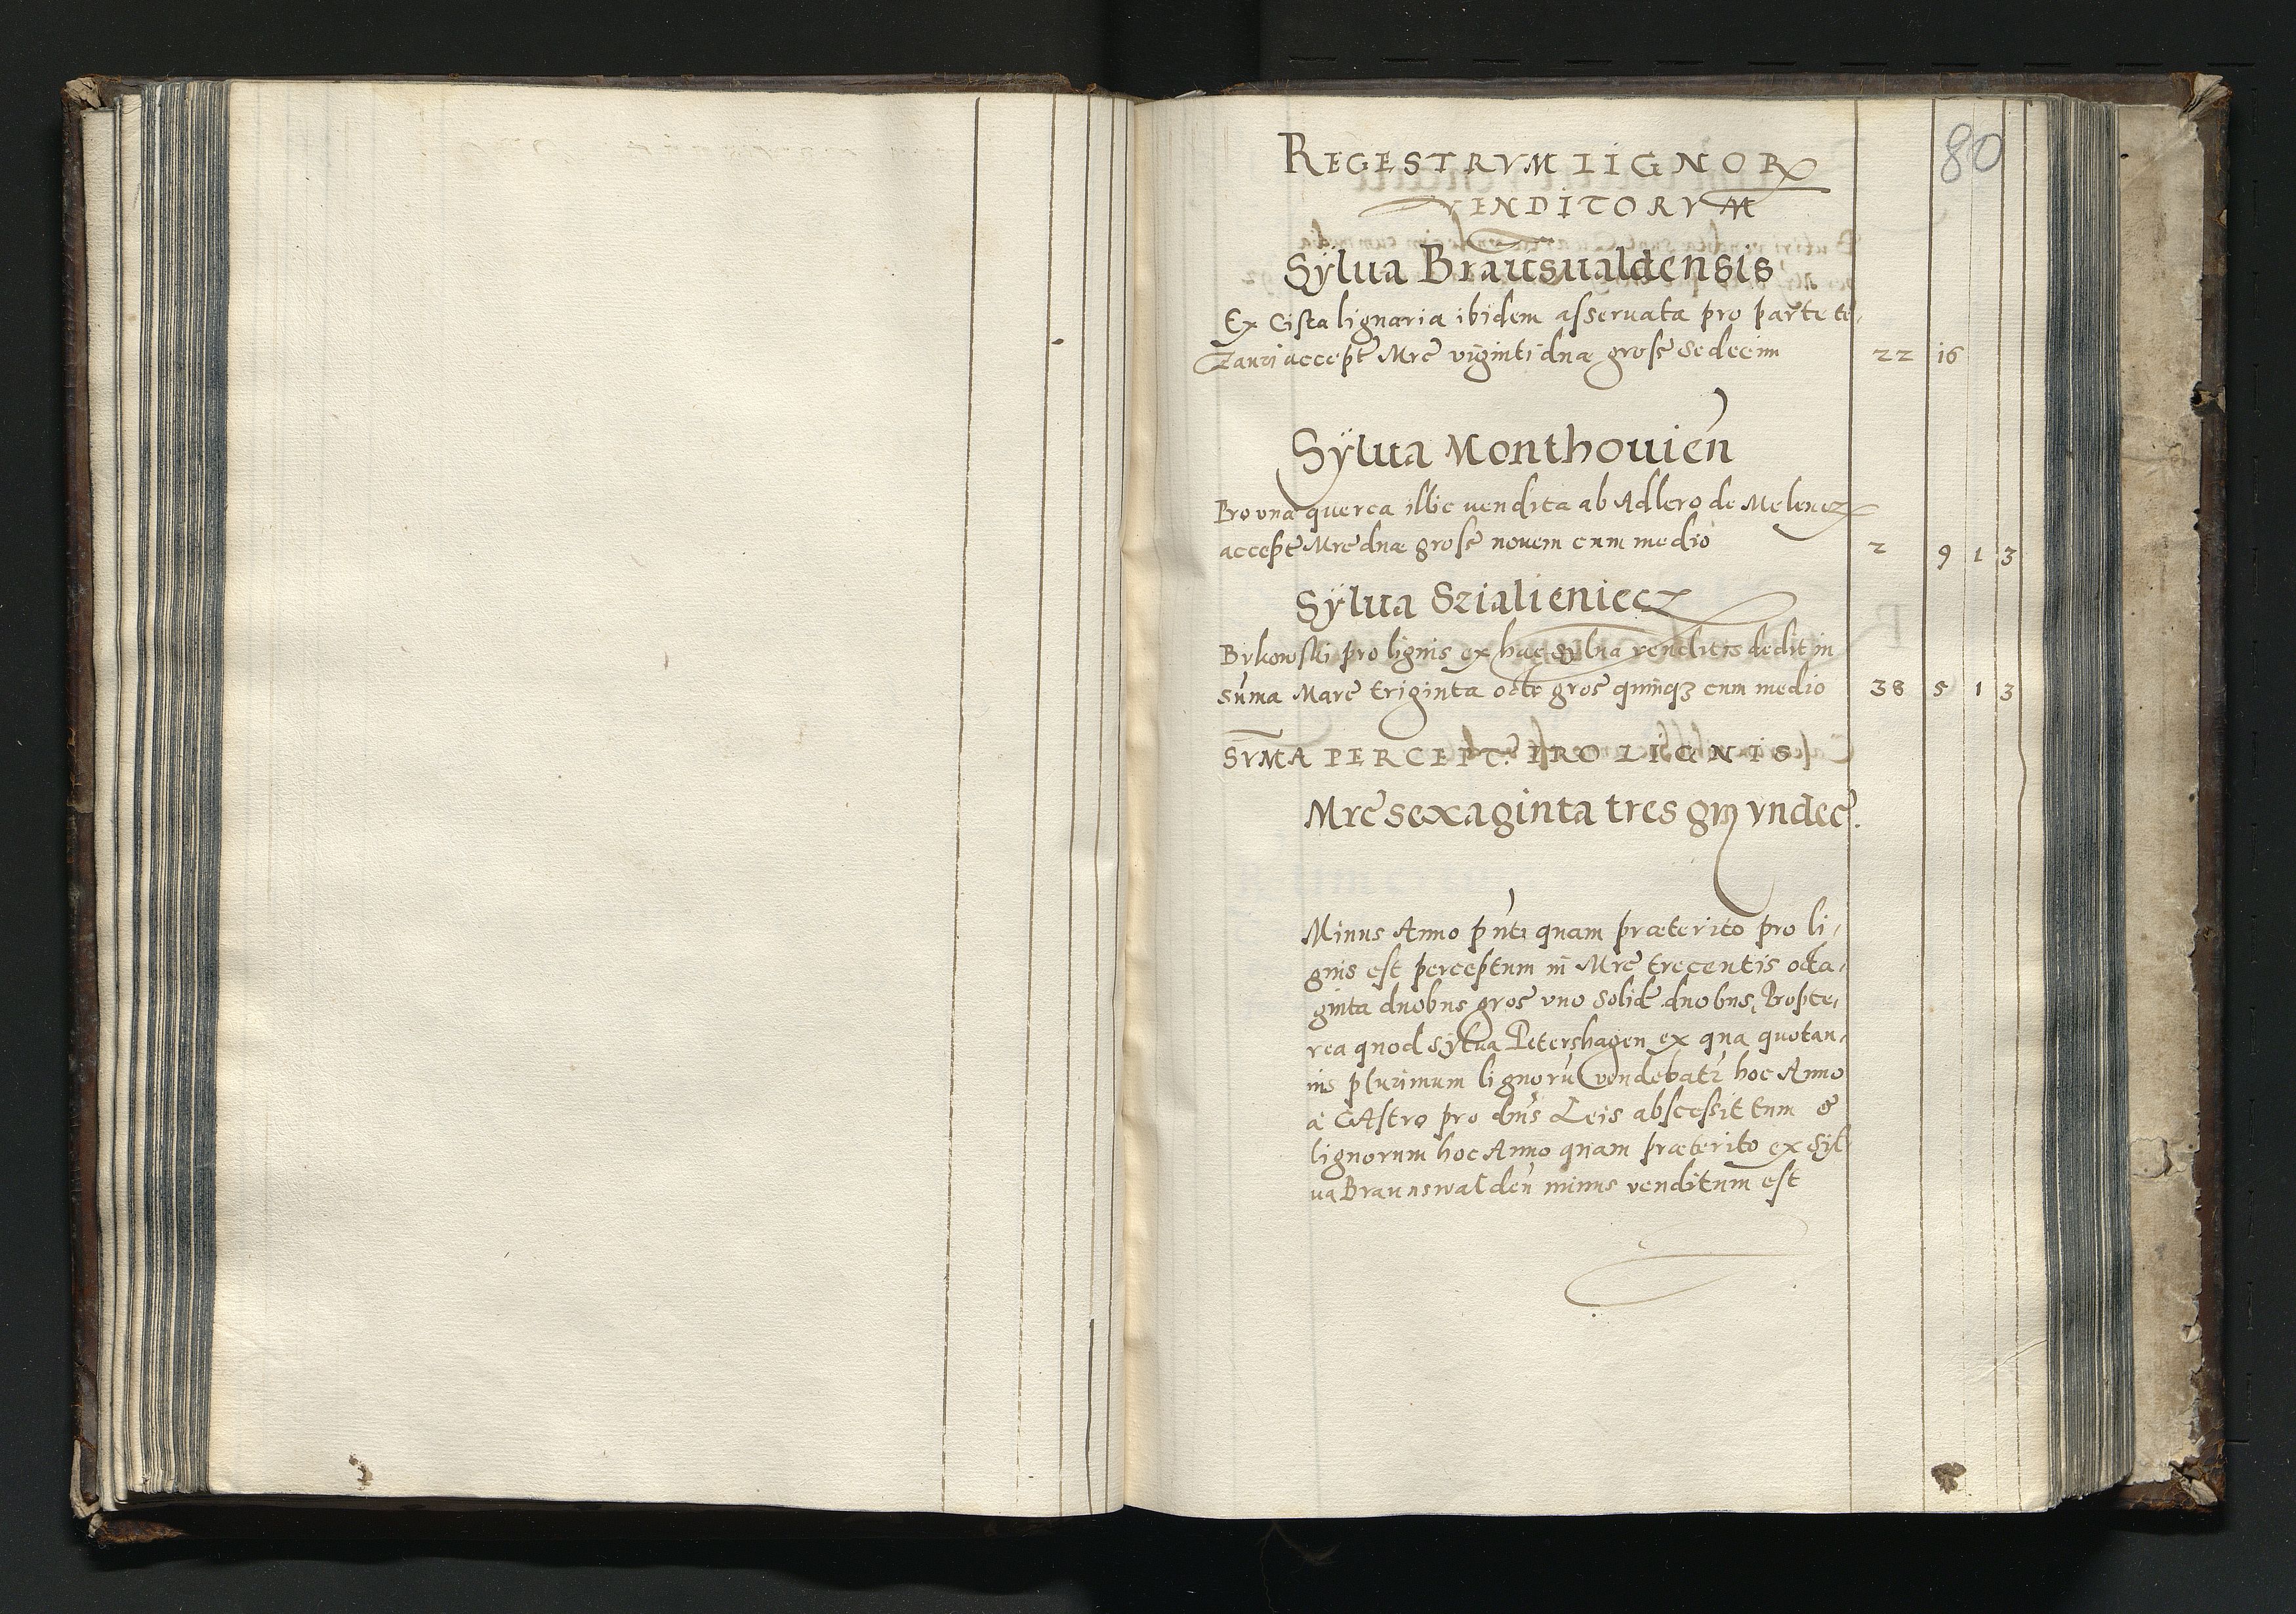 80
REGESTRVM LIGNORꝝ
VENDITORVM
Sÿlua Brausualdensis
Ex Cista lignaria ibidem asseruata pro parte te,
zauri accept Mrc̃ viginti duæ gross̃ sedecim 22 16
Sÿlua Monthouien̄
Pro vna querca illic vendita ab Adlero de Melencz
accept̃ Mrc̃ duæ gross̃ nouem cum medio 2 9 1 3
Sÿlua Szialieniecz
Bykowski pro lignis ex hac sylua venditis dedit in
sum̄a Marc̃ triginta octo gros̃ quinqꝫ cum medio 38 5 1 3
SVM̄A PERCEPT: PRO LIGNIS
Mrc̃ sexaginta tres gr̃ vndec̃.
Minus Anno pñti quam præterito pro li,
gnis est perceptum in Mrc̃ trecentis octa,
ginta duobus gros̃ vno solid̃ duobus, Propte,
rea quod sylua Petershagen ex qua quotan,
nis plurimum lignorũ vendebatr hoc Anno
à CAstro pro bnis̃ Leis abscessit tum &
lignorum hoc Anno quam præterito ex Syl
ua Braunswalden̄ minus venditum est